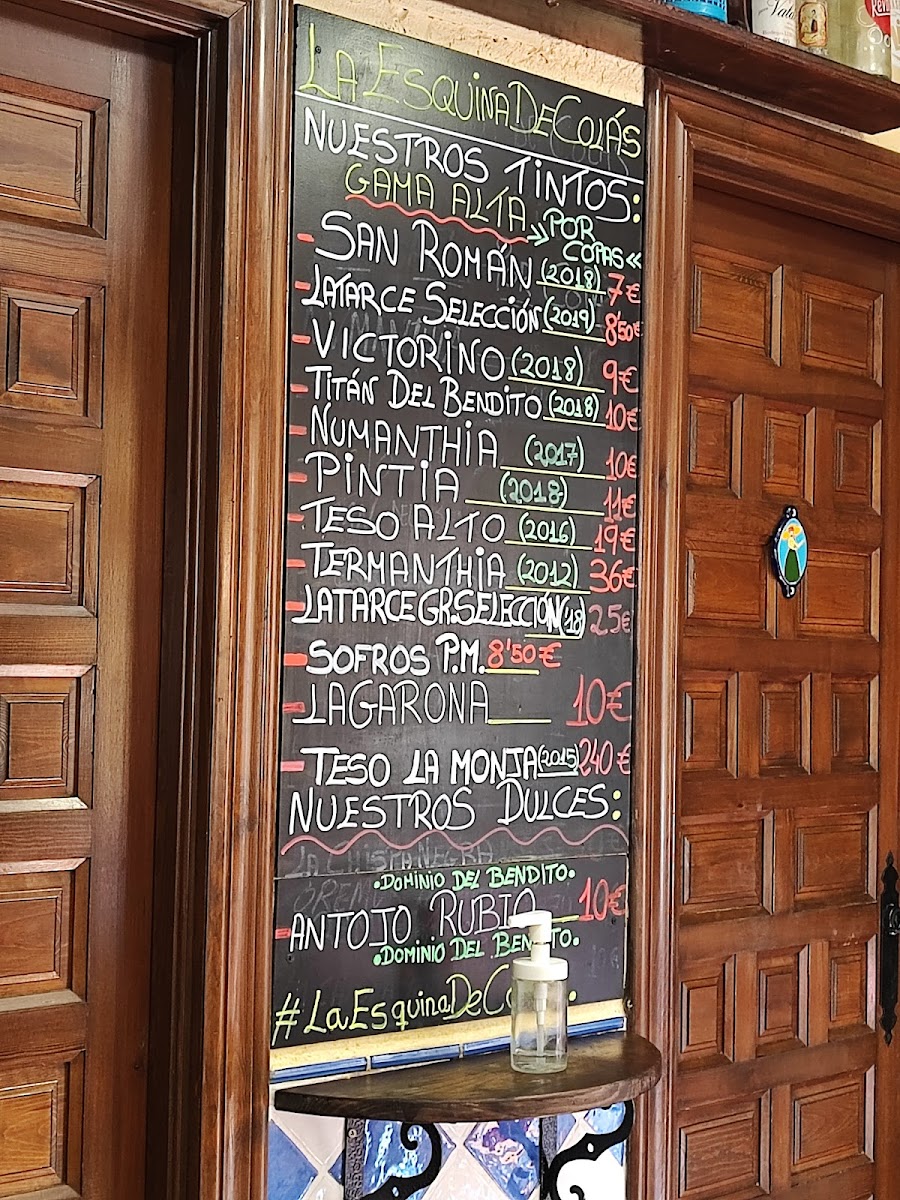 LA ESQUINA DE COLÁS
NUESTROS TINTOS:
GAMA ALTA
POR
COPAS «
- SAN ROMÁN (2018) 7€
- LATARCE SELECCIÓN (2019) 8'50€
- VICTORINO (2018) 9€
- TITÁN DEL BENDITO (2018) 10€
- NUMANTHIA (2017) 10€
- PINTIA (2018) 11€
- TESO ALTO (2016) 19€
- TERMANTHIA (2012) 36€
- LATARCE GR.SELECCIÓN (18) 25€
- SOFROS P.M. 8'50€
- LAGARONA 10€
- TESO LA MONJA (2015) 240€
NUESTROS DULCES:
LA CHISPA NEGRA
•DOMINIO DEL BENDITO•
- ANTOJO RUBIO 10€
•DOMINIO DEL BENDITO•
#LaEsquinaDeCo